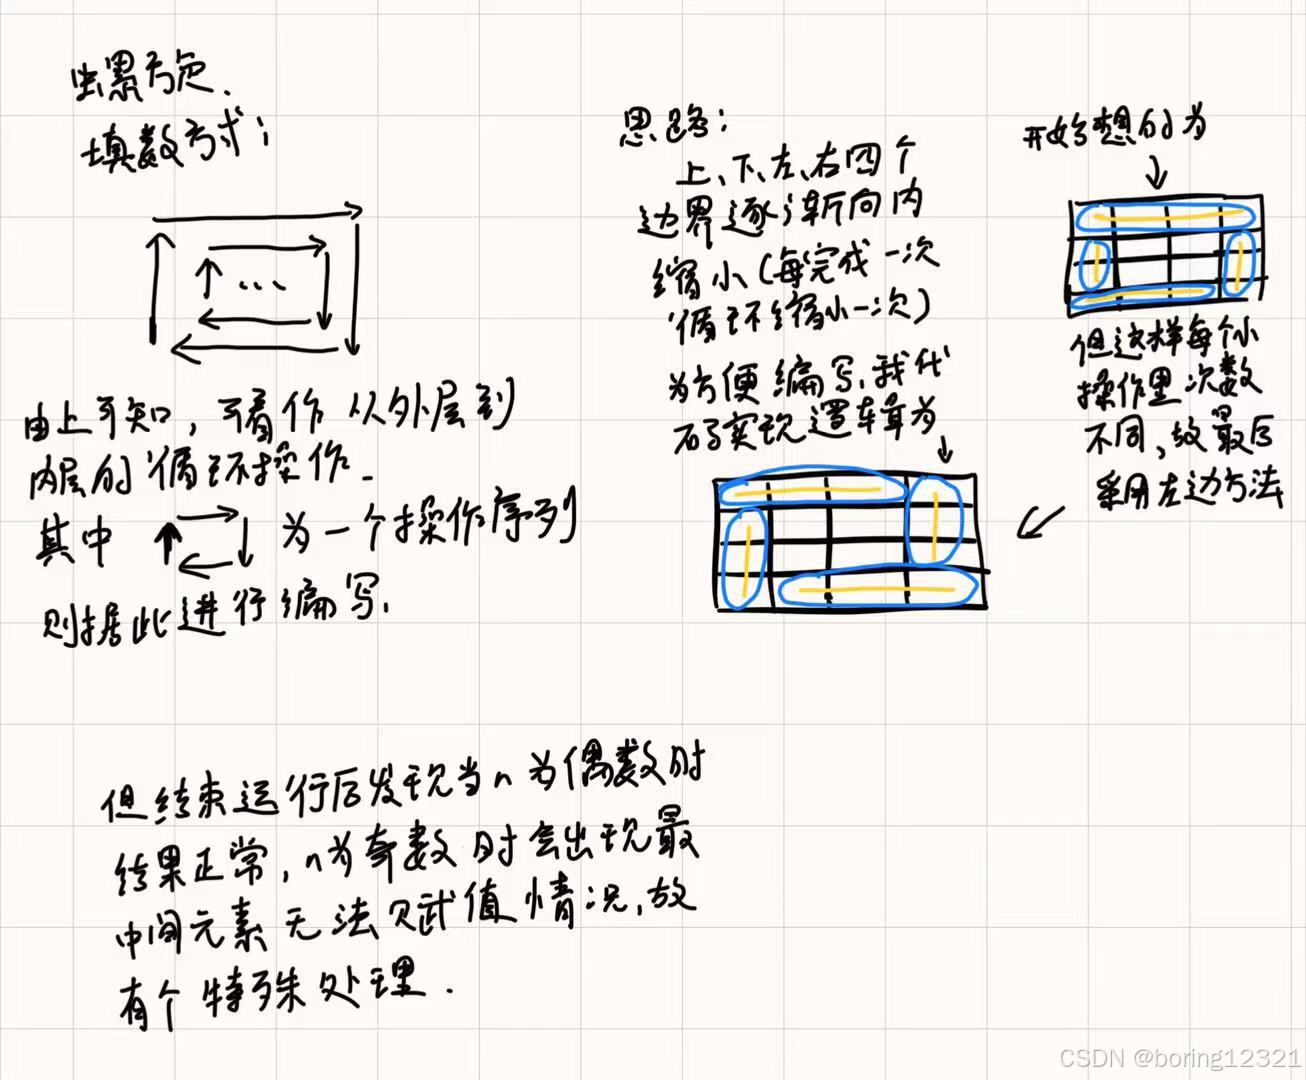 填数方式:
...
由上可知,可看作从外层到
内层的循环操作.
其中 为一个操作序列
则据此进行编写.
思路:
上、下、左、右四个
边界逐渐向内
缩小(每完成一次
循环缩小一次)
为方便编写,我代
码实现逻辑为
开始想的为
但这样每个小
操作里次数
不同,故最后
采用左边方法
但结束运行后发现当n为偶数时
结果正常,n为奇数时会出现最
中间元素无法赋值情况,故
有个特殊处理.
CSDN @boring12321